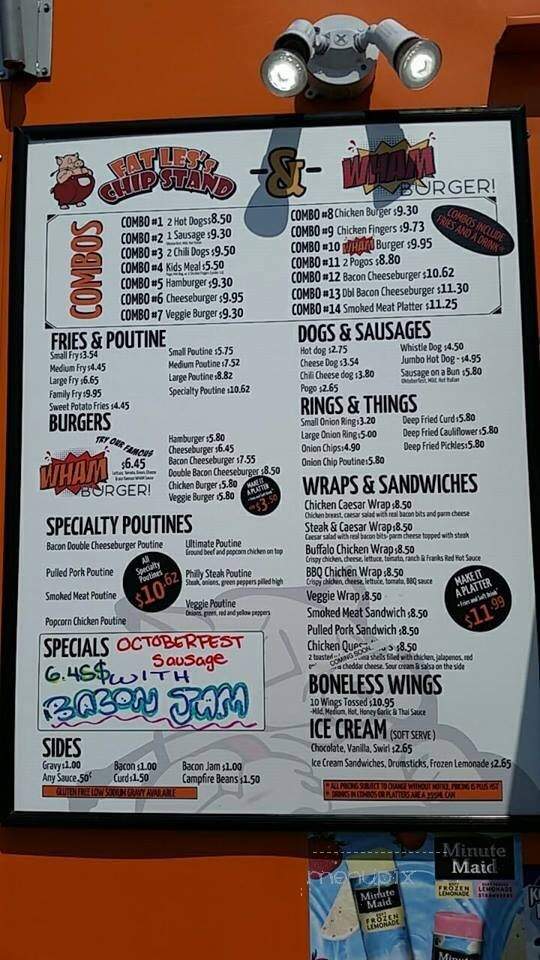 FAT LES'S
CHIP STAND
-&-
WHAM
BURGER!
COMBOS
COMBO #1 2 Hot Dogs $8.50
COMBO #2 1 Sausage $9.30
COMBO #3 2 Chili Dogs $9.50
COMBO #4 Kids Meal $5.50
COMBO #5 Hamburger $9.30
COMBO #6 Cheeseburger $9.95
COMBO #7 Veggie Burger $9.30
COMBO #8 Chicken Burger $9.30
COMBO #9 Chicken Fingers $9.73
COMBO #10 WHAM Burger $9.95
COMBO #11 2 Pogos $8.80
COMBO #12 Bacon Cheeseburger $10.62
COMBO #13 Dbl Bacon Cheeseburger $11.30
COMBO #14 Smoked Meat Platter $11.25
COMBOS INCLUDE
FRIES AND A DRINK
FRIES & POUTINE
Small Fry $3.54
Medium Fry $4.45
Large Fry $6.65
Family Fry $9.95
Sweet Potato Fries $4.45
Small Poutine $5.75
Medium Poutine $7.52
Large Poutine $8.82
Specialty Poutine $10.62
BURGERS
TRY OUR FAMOUS
WHAM
BURGER!
$6.45
Hamburger $5.80
Cheeseburger $6.45
Bacon Cheeseburger $7.55
Double Bacon Cheeseburger $8.50
Chicken Burger $5.80
Veggie Burger $5.80
MAKE IT
A PLATTER
$3.50
SPECIALTY POUTINES
Bacon Double Cheeseburger Poutine
Pulled Pork Poutine
Smoked Meat Poutine
Popcorn Chicken Poutine
All
Specialty
Poutines
$10.62
Ultimate Poutine
Ground beef and popcorn chicken on top
Philly Steak Poutine
Steak, onions, green peppers pilled high
Veggie Poutine
Onions, green, red and yellow peppers
SPECIALS OCTOBERFEST
Sausage
6.45$ WITH
BACON JAM
SIDES
Gravy $1.00
Any Sauce .50¢
Bacon $1.00
Curd $1.50
Bacon Jam $1.00
Campfire Beans $1.50
GLUTEN FREE LOW SODIUM GRAVY AVAILABLE
DOGS & SAUSAGES
Hot dog $2.75
Cheese Dog $3.54
Chili Cheese dog $3.80
Pogo $2.65
Whistle Dog $4.50
Jumbo Hot Dog - $4.95
Sausage on a Bun $5.80
Oktoberfest, Mild, Hot Italian
RINGS & THINGS
Small Onion Ring $3.20
Large Onion Ring $5.00
Onion Chips $4.90
Onion Chip Poutine $5.80
Deep Fried Curd $5.80
Deep Fried Cauliflower $5.80
Deep Fried Pickles $5.80
WRAPS & SANDWICHES
Chicken Caesar Wrap $8.50
Chicken breast, caesar salad with real bacon bits and parm cheese
Steak & Caesar Wrap $8.50
Caesar salad with real bacon bits- parm cheese topped with steak
Buffalo Chicken Wrap $8.50
Crispy chicken, cheese, lettuce, tomato, ranch & Franks Red Hot Sauce
BBQ Chicken Wrap $8.50
Crispy chicken, cheese, lettuce, tomato, BBQ sauce
Veggie Wrap $8.50
Smoked Meat Sandwich $8.50
Pulled Pork Sandwich $8.50
Chicken $8.50
COMING SOON
2 toasted shells filled with chicken, jalapenos, red
cheddar cheese. Sour cream & salsa on the side
MAKE IT
A PLATTER
+ Fries and Soft Drink
$11.99
BONELESS WINGS
10 Wings Tossed $10.95
-Mild, Medium, Hot, Honey Garlic & Thai Sauce
ICE CREAM (SOFT SERVE)
Chocolate, Vanilla, Swirl $2.65
Ice Cream Sandwiches, Drumsticks, Frozen Lemonade $2.65
* ALL PRICING SUBJECT TO CHANGE WITHOUT NOTICE, PRICING IS PLUS HST
* DRINKS IN COMBOS OR PLATTERS ARE A 355ML CAN
menupix
Minute
Maid
FROZEN
LEMONADE
LEMONADE
STRAWBERRY
Minute
Maid
FROZEN
LEMONADE